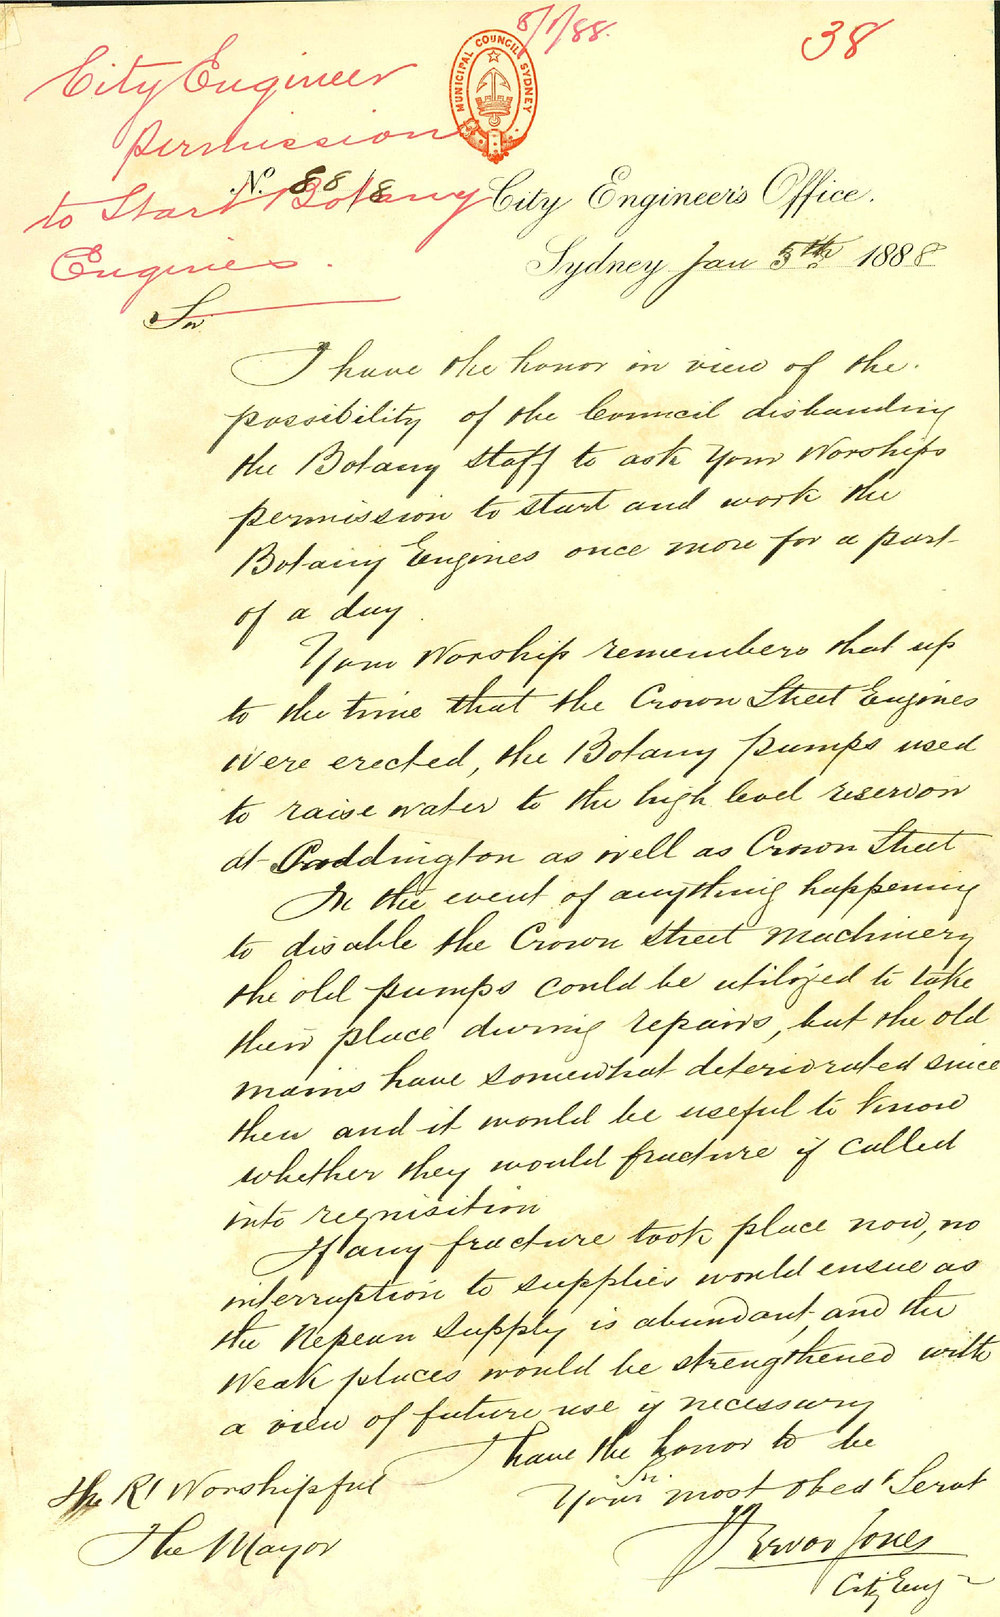 5/1/88.
38
City Engineer
permission
to Start Botany
Engines.
MUNICIPAL COUNCIL SYDNEY
No. 88/8
City Engineer's Office.
Sydney Jan 5th 1888
Sir
I have the honor in view of the
possibility of the Council disbanding
the Botany staff to ask Your Worships
permission to start and work the
Botany Engines once more for a part
of a day.
Your Worship remembers that up
to the time that the Crown Street Engines
were erected, the Botany pumps used
to raise water to the high level reservoir
at Paddington as well as Crown Street
In the event of anything happening
to disable the Crown Street Machinery
the old pumps could be utilized to take
their place during repairs, but the old
mains have somewhat deteriorated since
then and it would be useful to know
whether they would fracture if called
into requisition
If any fracture took place now, no
interruption to supplies would ensue as
the Nepean Supply is abundant, and the
weak places would be strengthened with
a view of future use if necessary
I have the honor to be
Sir
Your most obedt Servt
Trevor Jones
City Eng
The Rt Worshipful
The Mayor